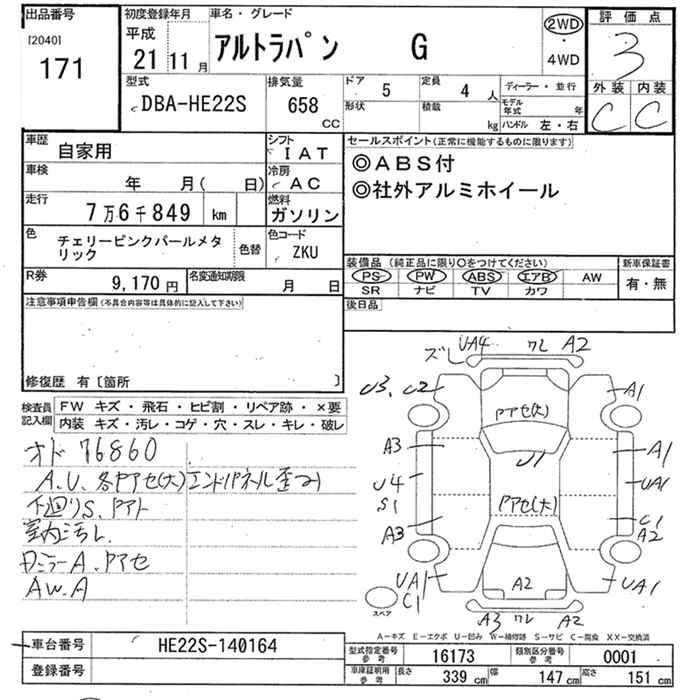 出品番号
[2040]
171
初度登録年月
平成
21 11 月
車名・グレード
アルトラパン G
2WD
・
4WD
評価点
3
外装 内装
C C
型式
DBA-HE22S
排気量
658
CC
ドア 5
定員 4 人
形状
積載 kg
ディーラー・並行
モデル年式 年
ハンドル 左・右
車歴
自家用
シフト
IAT
車検
年 月( 日)
冷房
AC
走行
7万6千849 km
燃料
ガソリン
色
チェリーピンクパールメタリック
色替
色コード
ZKU
R券
9,170 円
名変通知期限
月 日
セールスポイント(正常に機能するものに限ります)
◎ABS付
◎社外アルミホイール
装備品 (純正品に限り○をつけてください)
PS PW ABS エアB AW
SR ナビ TV カワ
新車保証書
有・無
後日品
注意事項申告欄(不具合内容等は具体的に記入して下さい)
修復歴 有〔箇所 〕
検査員記入欄
FW キズ・飛石・ヒビ割・リペア跡・×要
内装 キズ・汚レ・コゲ・穴・スレ・キレ・破レ
オド 76860
A.U.各アセ(大)エンドパネル歪
下廻りS.
室内汚レ
ミラーA.アセ
AW.A
ズレ UA4 ワレ A2
U3. U2
A1
アセ(大)
A3
U1
A1
U4
S1
UA1
アセ(大)
A3
C1
A2
UA1
C1
A2
UA1
スペア
A3 ワレ A2
A−キズ E−エクボ U−凹み W−補修跡 S−サビ C−腐食 XX−交換済
車台番号
HE22S-140164
登録番号
型式指定番号参考
16173
類別区分番号参考
0001
車庫証明用参考
長さ 339 cm
幅 147 cm
高さ 151 cm